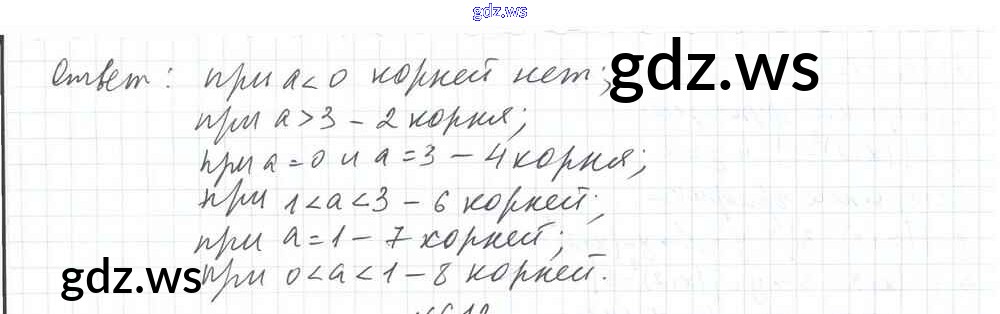 gdz.ws
Ответ: при a<0 корней нет; gdz.ws
при a>3 – 2 корня;
при a=0 и a=3 – 4 корня;
при 1<a<3 – 6 корней;
при a=1 – 7 корней;
gdz.ws при 0<a<1 – 8 корней.